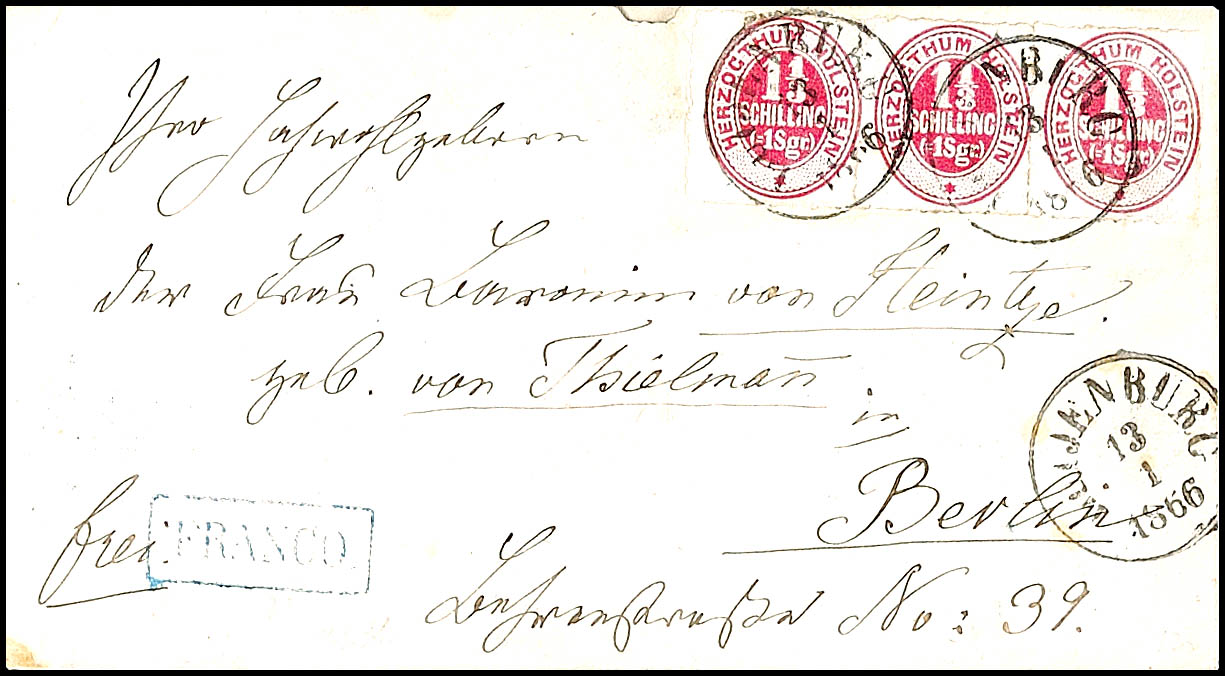 HERZOGTHUM HOLSTEIN 1⅓ SCHILLING (=1Sgr.)
HERZOGTHUM HOLSTEIN 1⅓ SCHILLING (=1Sgr.)
HERZOGTHUM HOLSTEIN 1⅓ SCHILLING (=1Sgr.)
Ihro Hochwohlgeboren
der Frau Baronin von Heintze.
geb. von Thielmann
in
Berlin
13
1
1866
frei. FRANCO.
Behrenstraße No: 39.